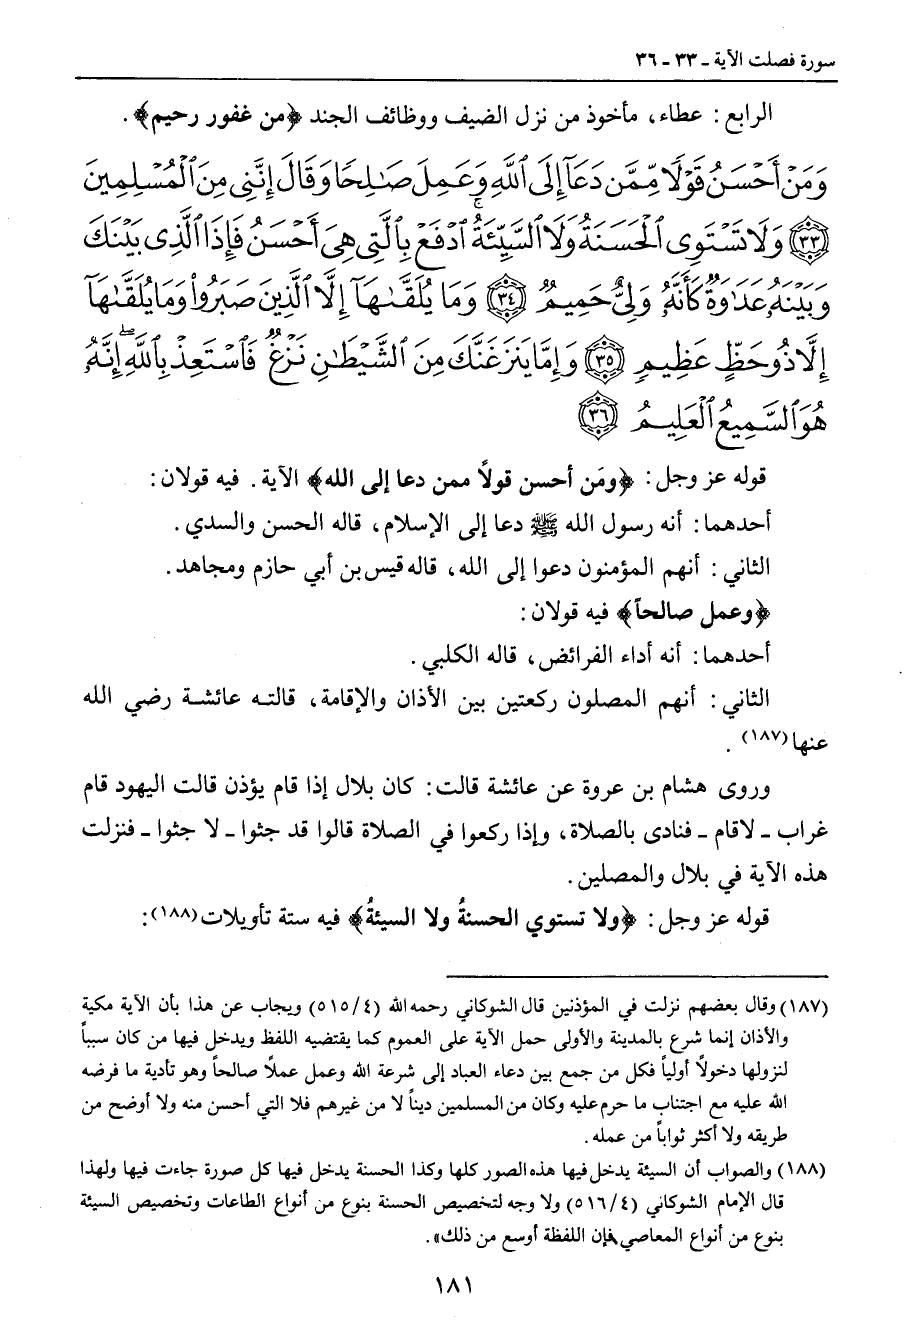 سورة فصلت الآية ـ ٣٣ ـ ٣٦
الرابع : عطاء، مأخوذ من نزل الضيف ووظائف الجند ﴿من غفور رحيم﴾ .
وَمَنْ أَحْسَنُ قَوْلًا مِّمَّن دَعَآ إِلَى ٱللَّهِ وَعَمِلَ صَـٰلِحًا وَقَالَ إِنَّنِى مِنَ ٱلْمُسْلِمِينَ
﴿٣٣﴾ وَلَا تَسْتَوِى ٱلْحَسَنَةُ وَلَا ٱلسَّيِّئَةُ ۚ ٱدْفَعْ بِٱلَّتِى هِىَ أَحْسَنُ فَإِذَا ٱلَّذِى بَيْنَكَ
وَبَيْنَهُۥ عَدَٰوَةٌ كَأَنَّهُۥ وَلِىٌّ حَمِيمٌ ﴿٣٤﴾ وَمَا يُلَقَّىٰهَآ إِلَّا ٱلَّذِينَ صَبَرُوا۟ وَمَا يُلَقَّىٰهَآ
إِلَّا ذُو حَظٍّ عَظِيمٍ ﴿٣٥﴾ وَإِمَّا يَنزَغَنَّكَ مِنَ ٱلشَّيْطَـٰنِ نَزْغٌ فَٱسْتَعِذْ بِٱللَّهِ ۖ إِنَّهُۥ
هُوَ ٱلسَّمِيعُ ٱلْعَلِيمُ ﴿٣٦﴾
قوله عز وجل : ﴿ومَن أحسن قولاً ممن دعا إلى الله﴾ الآية . فيه قولان :
أحدهما : أنه رسول الله ﷺ دعا إلى الإسلام، قاله الحسن والسدي .
الثاني : أنهم المؤمنون دعوا إلى الله، قاله قيس بن أبي حازم ومجاهد .
﴿وعمل صالحاً﴾ فيه قولان :
أحدهما : أنه أداء الفرائض، قاله الكلبي .
الثاني : أنهم المصلون ركعتين بين الأذان والإقامة، قالته عائشة رضي الله
عنها(١٨٧) .
وروى هشام بن عروة عن عائشة قالت : كان بلال إذا قام يؤذن قالت اليهود قام
غراب ـ لاقام ـ فنادى بالصلاة، وإذا ركعوا في الصلاة قالوا قد جثوا ـ لا جثوا ـ فنزلت
هذه الآية في بلال والمصلين .
قوله عز وجل : ﴿ولا تستوي الحسنةُ ولا السيئةُ﴾ فيه ستة تأويلات(١٨٨) :
(١٨٧) وقال بعضهم نزلت في المؤذنين قال الشوكاني رحمه الله (٥١٥/٤) ويجاب عن هذا بأن الآية مكية
والأذان إنما شرع بالمدينة والأولى حمل الآية على العموم كما يقتضيه اللفظ ويدخل فيها من كان سبباً
لنزولها دخولاً أولياً فكل من جمع بين دعاء العباد إلى شرعة الله وعمل عملاً صالحاً وهو تأدية ما فرضه
الله عليه مع اجتناب ما حرم عليه وكان من المسلمين ديناً لا من غيرهم فلا التي أحسن منه ولا أوضح من
طريقه ولا أكثر ثواباً من عمله .
(١٨٨) والصواب أن السيئة يدخل فيها هذه الصور كلها وكذا الحسنة يدخل فيها كل صورة جاءت فيها ولهذا
قال الإمام الشوكاني (٥١٦/٤) ولا وجه لتخصيص الحسنة بنوع من أنواع الطاعات وتخصيص السيئة
بنوع من أنواع المعاصي فإن اللفظة أوسع من ذلك» .
١٨١